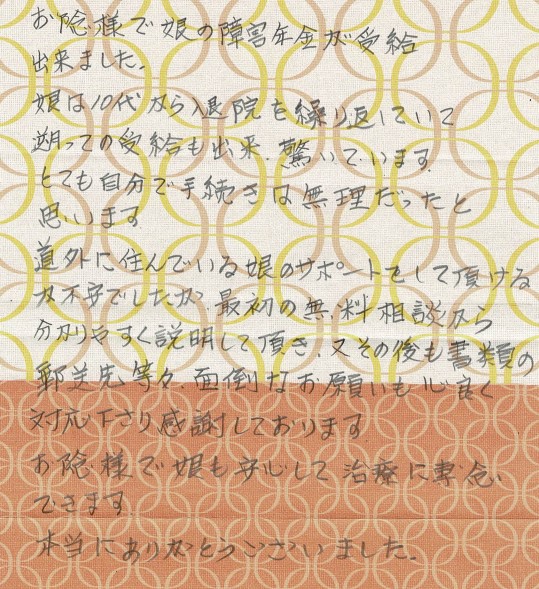 お陰様で娘の障害年金が受給
出来ました。
娘は10代から入退院を繰り返していて
遡っての受給も出来、驚いています
とても自分で手続きは無理だったと
思います
道外に住んでいる娘のサポートをして頂ける
か不安でしたが、最初の無料相談から
分かりやすく説明して頂き、又その後も書類の
郵送先等々、面倒なお願いも心良く
対応下さり感謝しております
お陰様で娘も安心して治療に専念
できます
本当にありがとうございました。